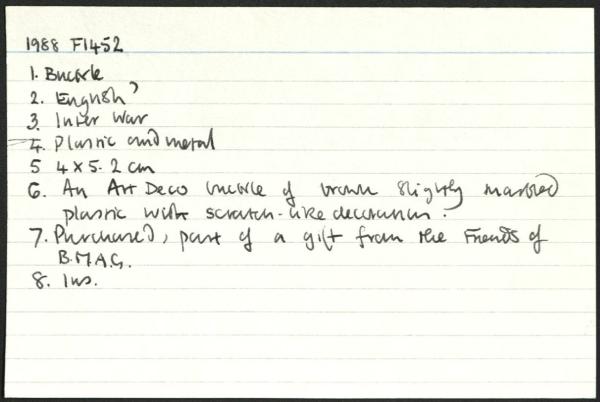 1988 F1452
1. Buckle
2. English?
3. Inter War
4. Plastic and metal
5 4 x 5.2 cm
6. An Art Deco buckle of brown slightly marbled
plastic with scratch-like decoration.
7. Purchased, part of a gift from the Friends of
B.M.A.G.
8. Ins.